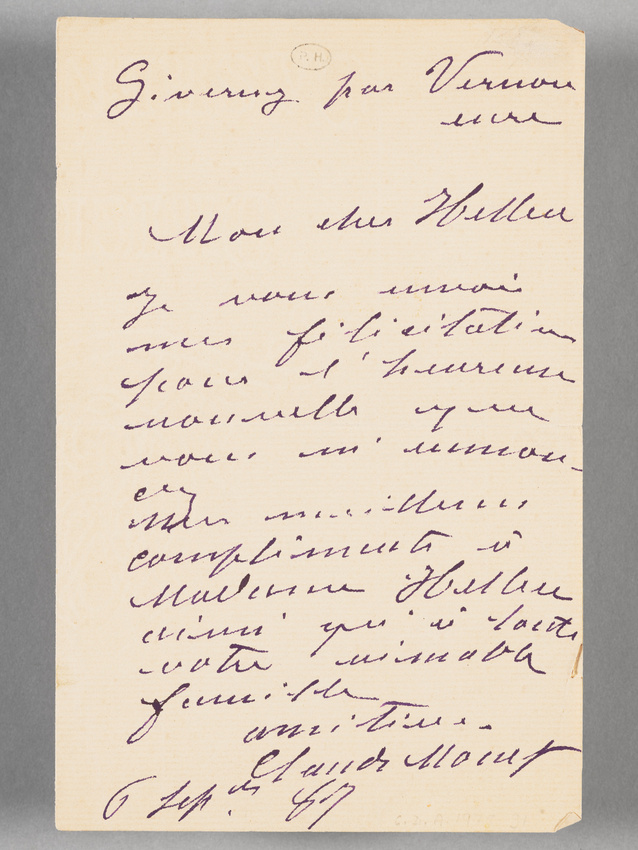 P. H.
Giverny par Vernon
eure
Mon cher Helleu
Je vous envoie
mes félicitations
pour l'heureuse
nouvelle que
vous m'annon-
cez
Mes meilleurs
compliments à
Madame Helleu
ainsi qu'à toute
votre aimable
famille
amitiés.
Claude Monet
6 Sep. 87